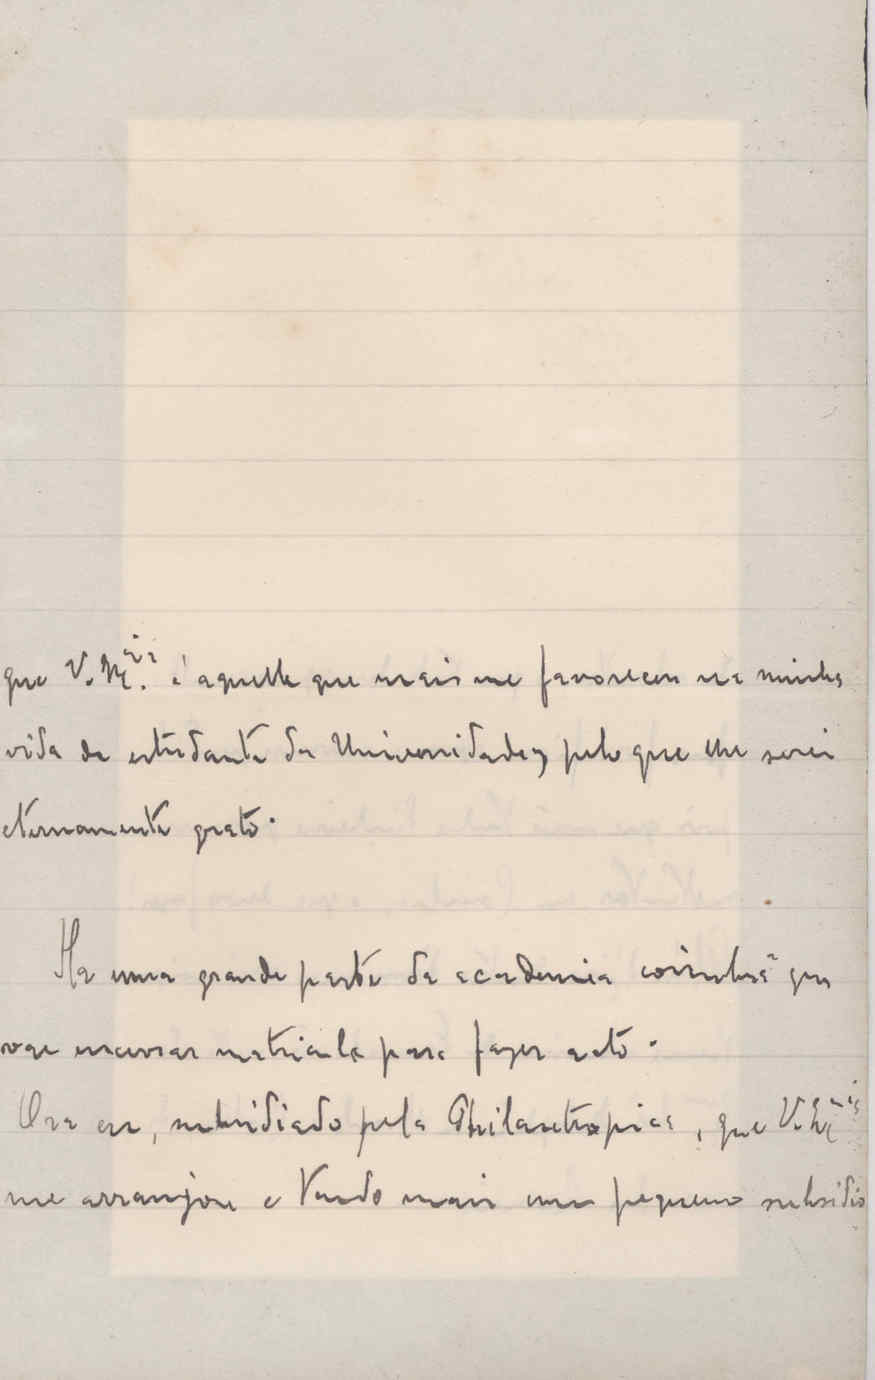 que V. Ex.cia é aquelle que mais me favoreceu na minha
vida de estudante da Universidade, pelo que lhe serei
eternamente grato.
Ha uma grande parte da academia coimbrã que
vae encerrar matricula para fazer acto.
Ora eu, subsidiado pela Philantropica, que V. Ex.cia
me arranjou e tendo mais um pequeno subsidio